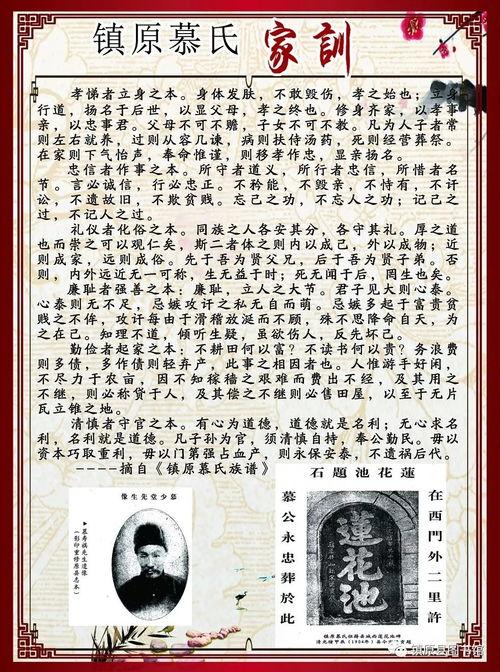 镇原慕氏 家訓
孝悌者立身之本。身体发肤，不敢毁伤，孝之始也；立身
行道，扬名于后世，以显父母，孝之终也。修身齐家，以孝事
亲，以忠事君。父母不可不赡，子女不可不教。凡为人子者常
则左右就养，过则从容几谏，病则扶侍汤药，死则经营葬祭。
在家则下气怡声，奉命惟谨，则移孝作忠，显亲扬名。
忠信者作事之本。所守者道义，所行者忠信，所惜者名
节。言必诚信，行必忠正。不矜能，不毁亲，不恃有，不讦
讼，不遗故旧，不欺贫贱。忘己之功，不忘人之功；记己之
过，不记人之过。
礼仪者化俗之本。同族之人各安其分，各守其礼。厚之道
也而崇之可以观仁矣，斯二者体之则内以成己，外以成物；近
则成家，远则成俗。先于吾为贤父兄，后于吾为贤子弟。否
则，内外远近无一可称，生无益于时；死无闻于后，罔生也矣。
廉耻者强善之本：廉耻，立人之大节。君子见大则心泰。
心泰则无不足，忌嫉攻讦之私无自而萌。忌嫉多起于富贵贫
贱之不侔，攻讦每由于滑稽放涎而不顾，殊不思降命自天，为
之在己。知理不道，倾听生疑，虽欲伤人，反先坏己。
勤俭者起家之本：不耕田何以富？不读书何以贵？务浪费
则多债，多作债则轻弃产，此事之相因者也。人惟游手好闲，
不尽力于农亩，因不知稼穑之艰难而费出不经，及其用之
不继，则必称贷于人，及其偿之不继则必售田屋，以至于无片
瓦立锥之地。
清慎者守官之本。有心为道德，道德就是名利；无心求名
利，名利就是道德。凡子孙为官，须清慎自持，奉公勤民。毋以
资本巧取重利，毋以门第强占血产，则永保安泰，不遗祸后代。
----摘自《镇原慕氏族谱》
像生先堂少慕
▶慕寿祺先生遗像
（影印重修镇原县志本）
石題池花蓮
在西門外二里許
蓮花池
慕公永忠葬於此
镇原慕氏祖籍县城西莲花池碑
镇原县图书馆